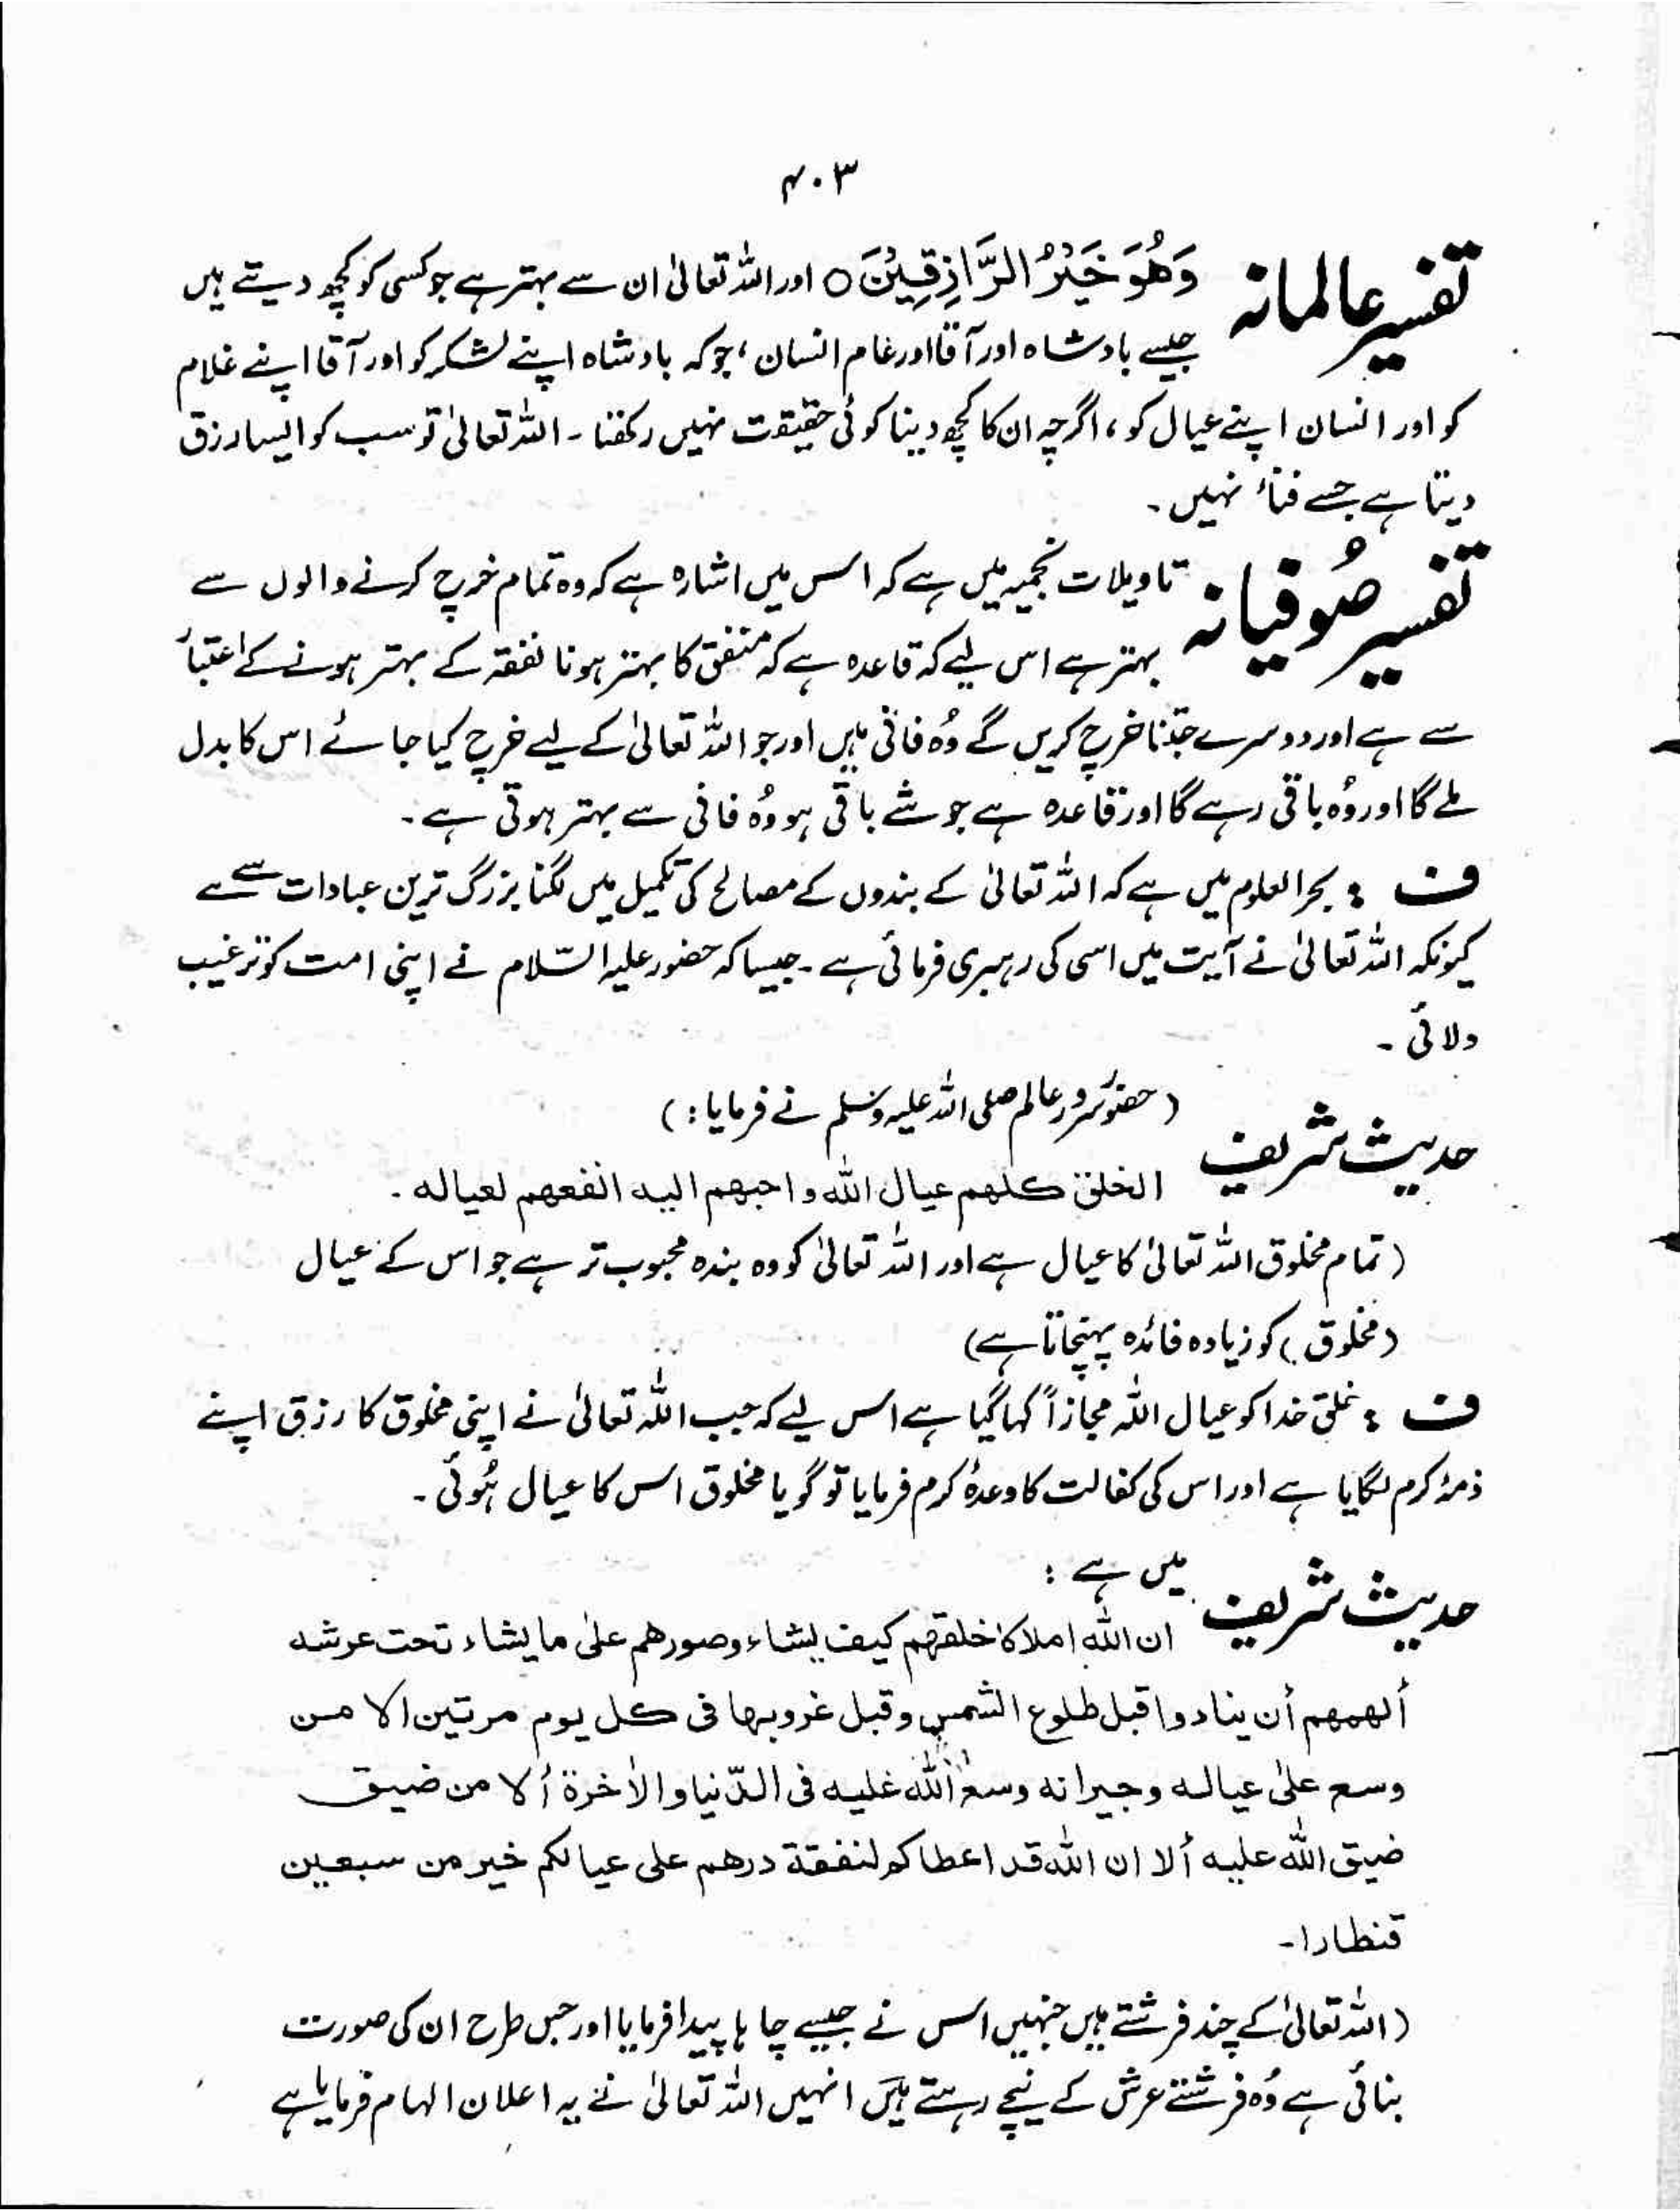 ۴۰۳
تفسیر عالمانہ وَهُوَ خَيْرُ الرَّازِقِيْنَ ○ اور اللہ تعالیٰ ان سے بہتر ہے جو کسی کو کچھ دیتے ہیں
جیسے بادشاہ اور آقا اور عام انسان، جو کہ بادشاہ اپنے لشکر کو اور آقا اپنے غلام
کو اور انسان اپنے عیال کو، اگرچہ ان کا کچھ دینا کوئی حقیقت نہیں رکھتا۔ اللہ تعالیٰ تو سب کو ایسا رزق
دیتا ہے جسے فناء نہیں۔
تفسیر صُوفیانہ تاویلات نجمیہ میں ہے کہ اس میں اشارہ ہے کہ وہ تمام خرچ کرنے والوں سے
بہتر ہے اس لیے کہ قاعدہ ہے کہ منفق کا بہتر ہونا نفقہ کے بہتر ہونے کے اعتبار
سے ہے اور دوسرے جتنا خرچ کریں گے وُہ فانی ہیں اور جو اللہ تعالیٰ کے لیے خرچ کیا جائے اس کا بدل
ملے گا اور وُہ باقی رہے گا اور قاعدہ ہے جو شے باقی ہو وُہ فانی سے بہتر ہوتی ہے۔
ف : بحر العلوم میں ہے کہ اللہ تعالیٰ کے بندوں کے مصالح کی تکمیل میں لگنا بزرگ ترین عبادات سے ہے
کیونکہ اللہ تعالیٰ نے آیت میں اسی کی رہبری فرمائی ہے۔ جیسا کہ حضور علیہ السّلام نے اپنی امت کو ترغیب
دلائی۔
حدیث شریف (حضور سرور عالم صلی اللہ علیہ وسلم نے فرمایا:)
الخلق كلهم عيال الله واحبهم اليه انفعهم لعياله۔
(تمام مخلوق اللہ تعالیٰ کا عیال ہے اور اللہ تعالیٰ کو وہ بندہ محبوب تر ہے جو اس کے عیال
(مخلوق) کو زیادہ فائدہ پہنچاتا ہے)
ف : خلقِ خدا کو عیال اللہ مجازاً کہا گیا ہے اس لیے کہ جب اللہ تعالیٰ نے اپنی مخلوق کا رزق اپنے
ذمۂ کرم لگایا ہے اور اس کی کفالت کا وعدۂ کرم فرمایا تو گویا مخلوق اس کا عیال ہُوئی۔
حدیث شریف میں ہے :
ان الله املاكا خلقهم كيف يشاء وصورهم على ما يشاء تحت عرشه
ألهمهم أن ينادوا قبل طلوع الشمس وقبل غروبها فى كل يوم مرتين الا من
وسع على عياله وجيرانه وسع الله عليه فى الدّنيا والاٰخرة ألا من ضيق
ضيق الله عليه ألا ان الله قد اعطاكم لنفقة درهم على عيالكم خير من سبعين
قنطارا۔
(اللہ تعالیٰ کے چند فرشتے ہیں جنہیں اس نے جیسے چاہا پیدا فرمایا اور جس طرح ان کی صورت
بنائی ہے وُہ فرشتے عرش کے نیچے رہتے ہیں انہیں اللہ تعالیٰ نے یہ اعلان الہام فرمایا ہے